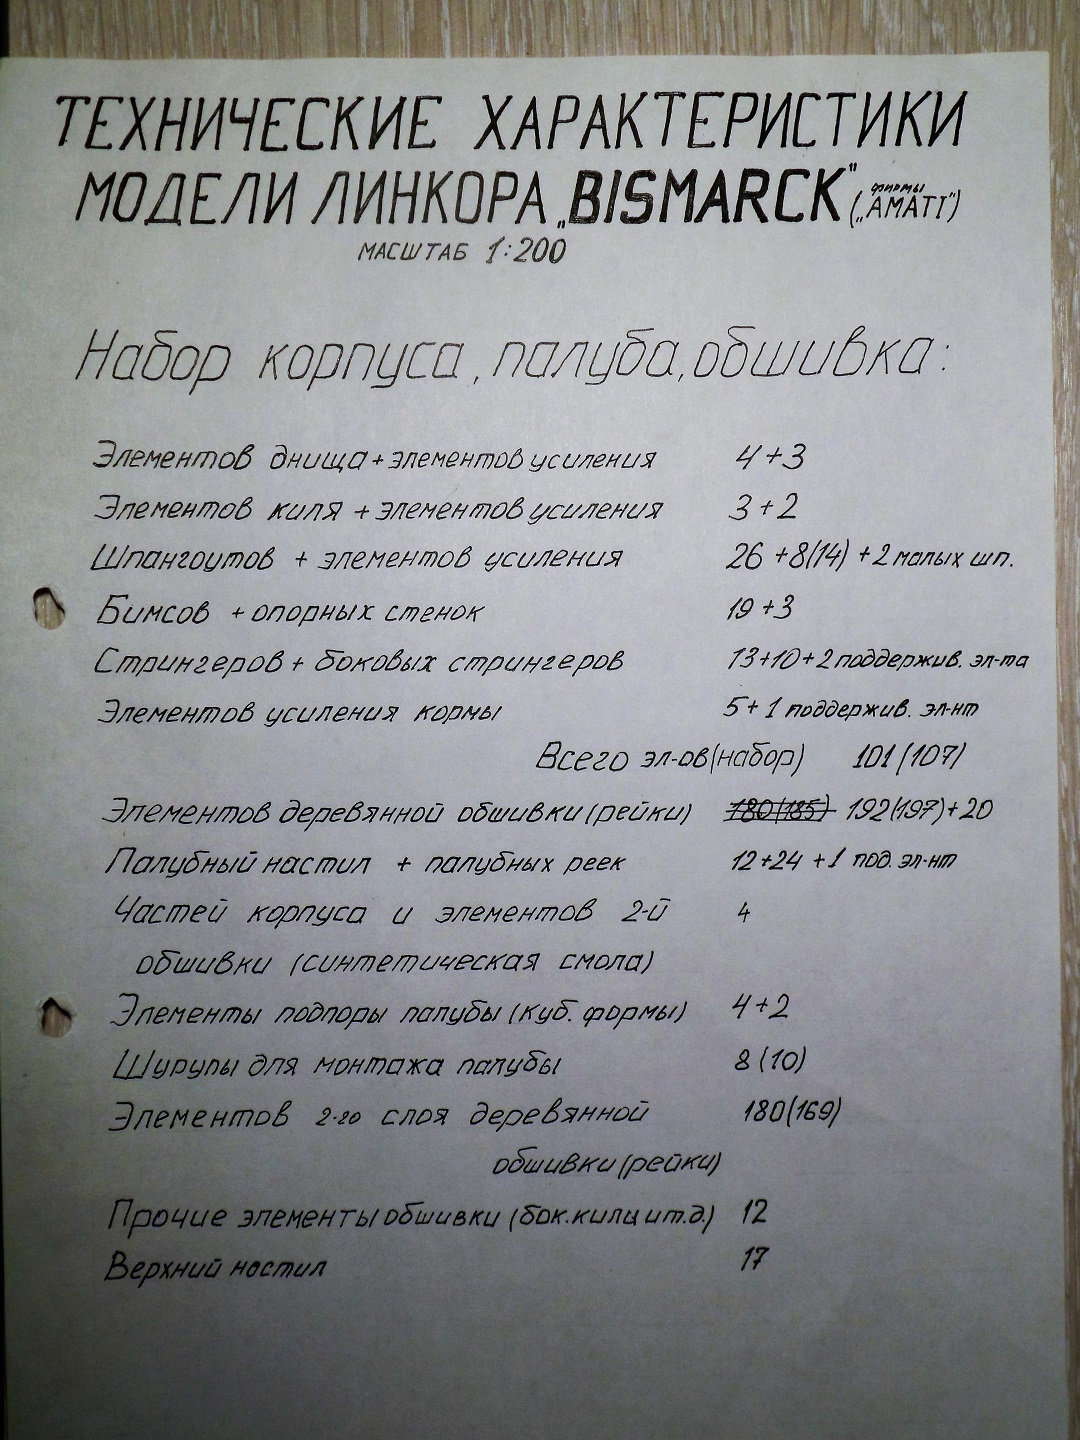 ТЕХНИЧЕСКИЕ ХАРАКТЕРИСТИКИ
МОДЕЛИ ЛИНКОРА „BISMARCK" (фирмы „AMATI")
МАСШТАБ 1:200
Набор корпуса, палуба, обшивка:
Элементов днища + элементов усиления 4+3
Элементов киля + элементов усиления 3+2
Шпангоутов + элементов усиления 26 +8(14) +2 малых шп.
Бимсов + опорных стенок 19+3
Стрингеров + боковых стрингеров 13+10+2 поддержив. эл-та
Элементов усиления кормы 5+1 поддержив. эл-нт
Всего эл-ов (набор) 101 (107)
Элементов деревянной обшивки (рейки) 180(185) 192(197)+20
Палубный настил + палубных реек 12+24 +1 под. эл-нт
Частей корпуса и элементов 2-й 4
обшивки (синтетическая смола)
Элементы подпоры палубы (куб. формы) 4+2
Шурупы для монтажа палубы 8 (10)
Элементов 2-го слоя деревянной 180(169)
обшивки (рейки)
Прочие элементы обшивки (бок. кили и т.д.) 12
Верхний настил 17